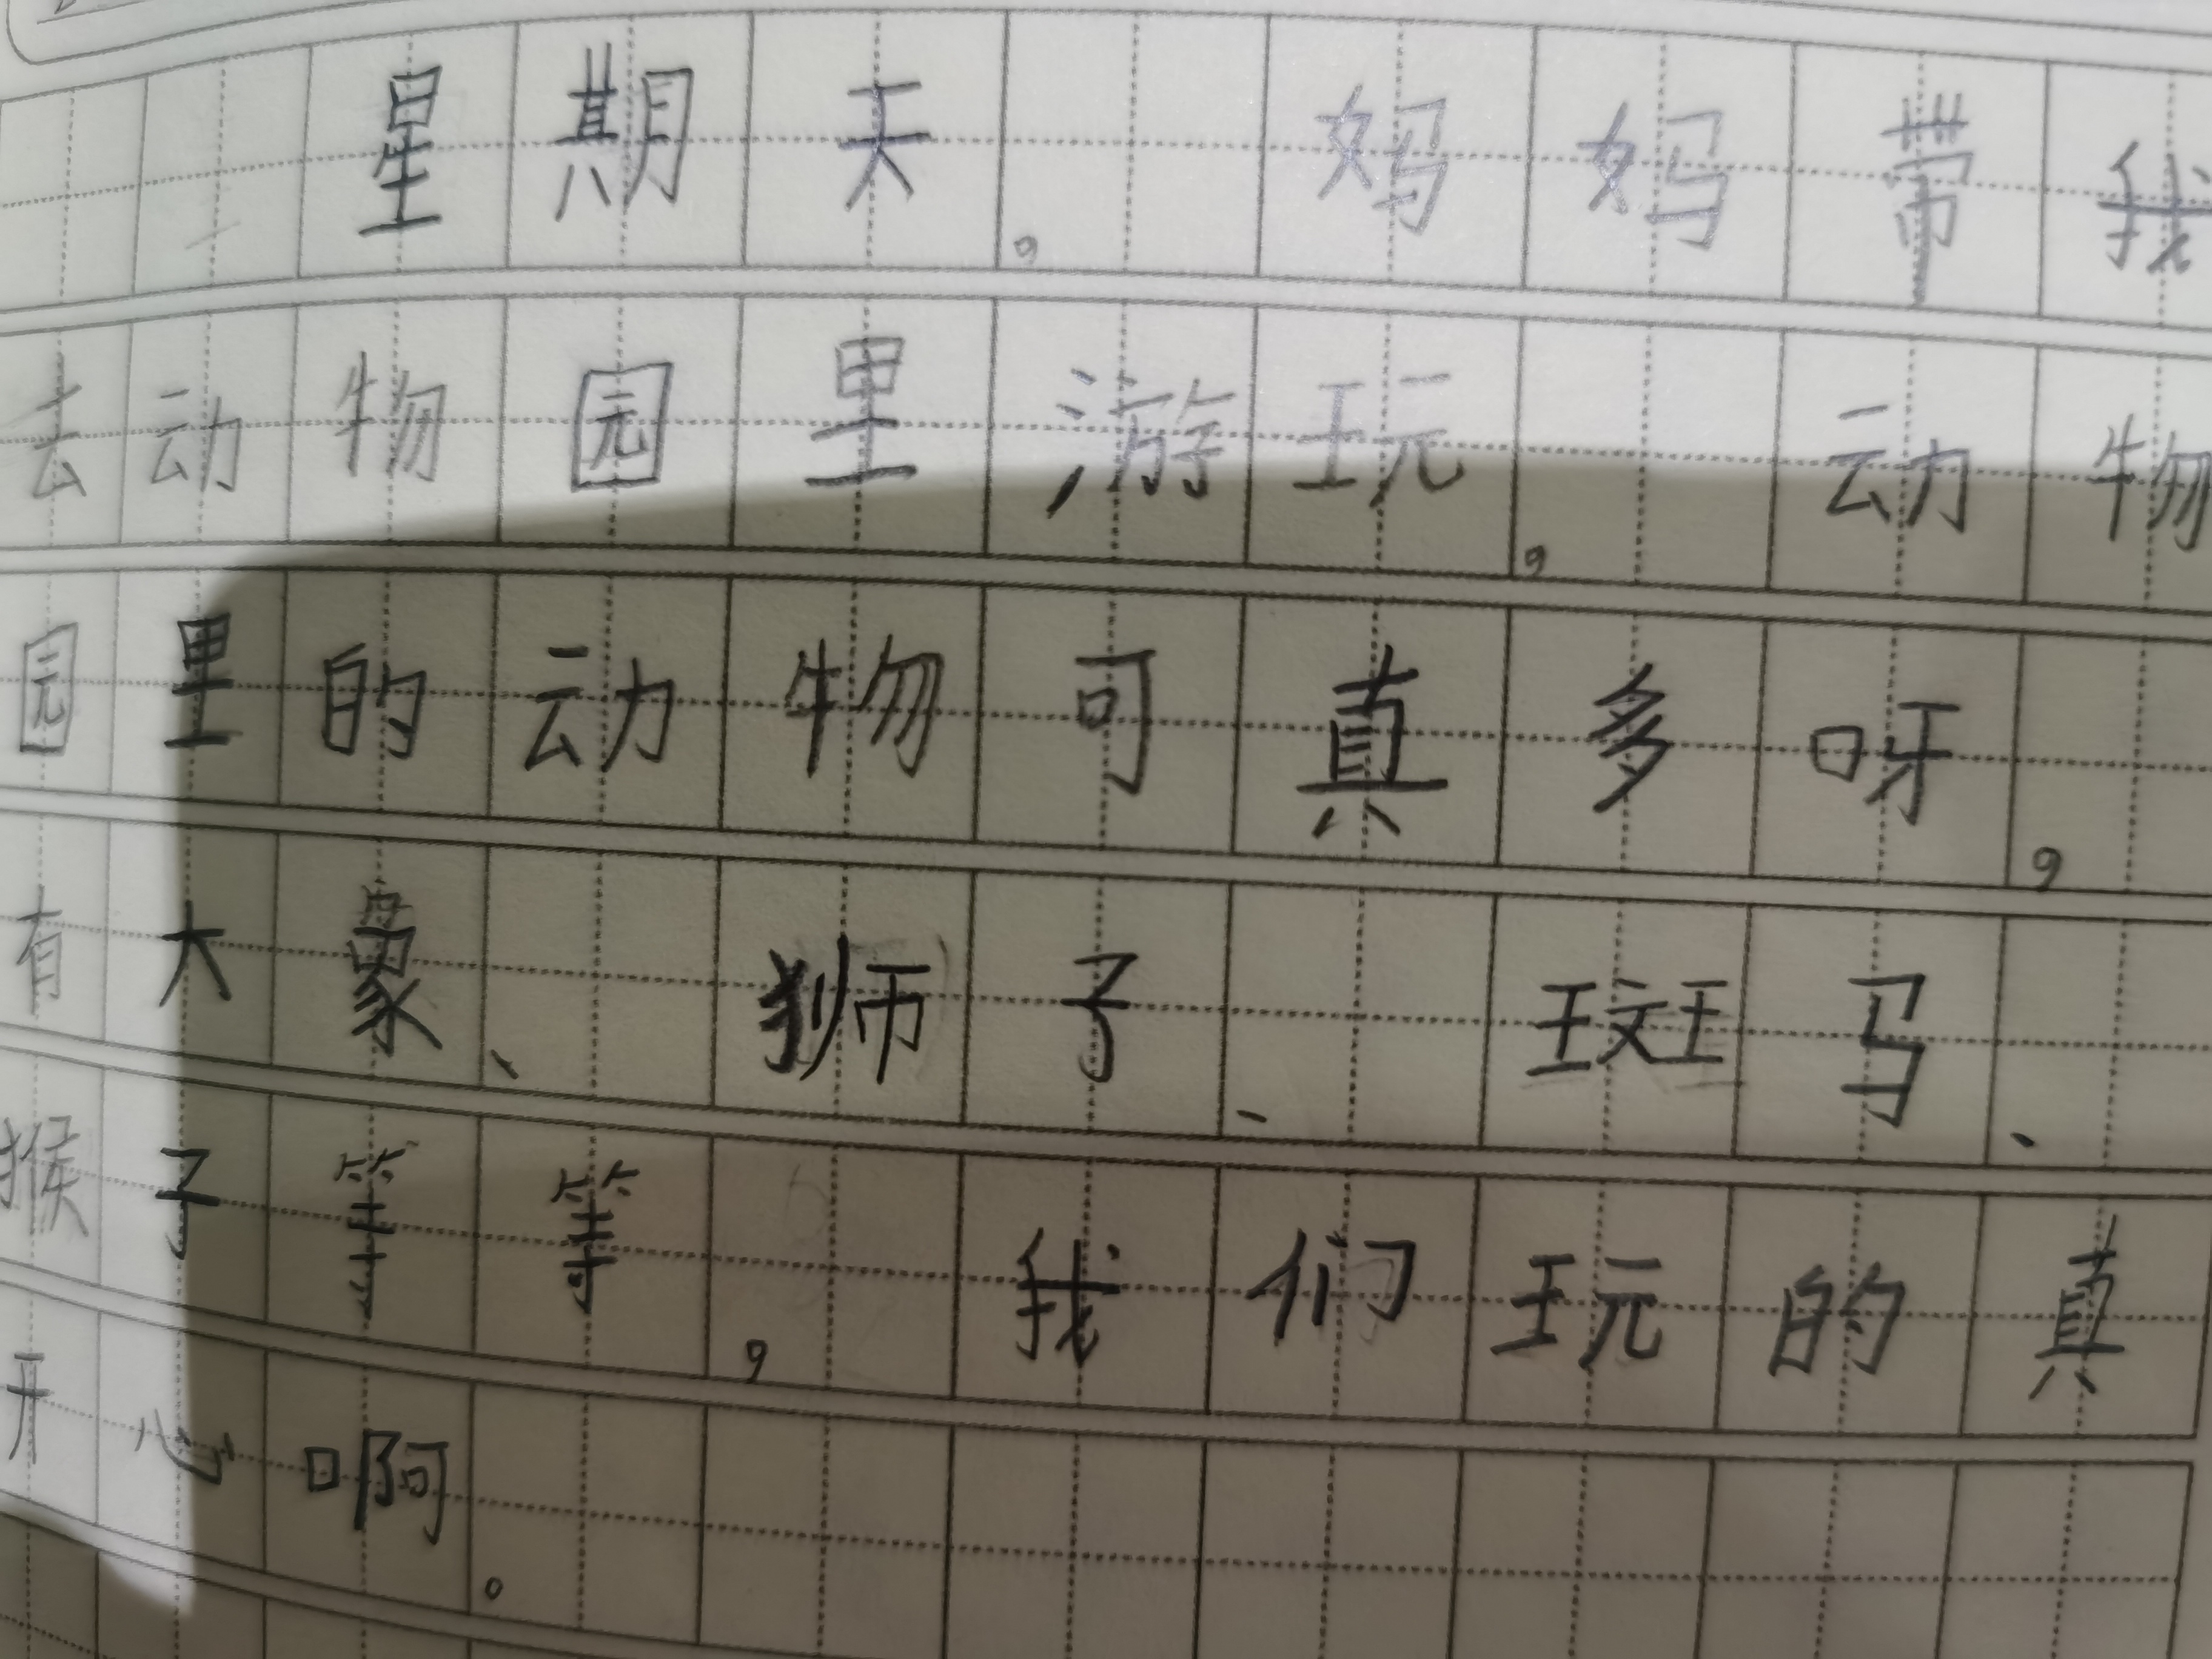 星期天，妈妈带我
去动物园里游玩，动物
园里的动物可真多呀，
有大象、狮子、斑马、
猴子等等，我们玩的真
开心啊。